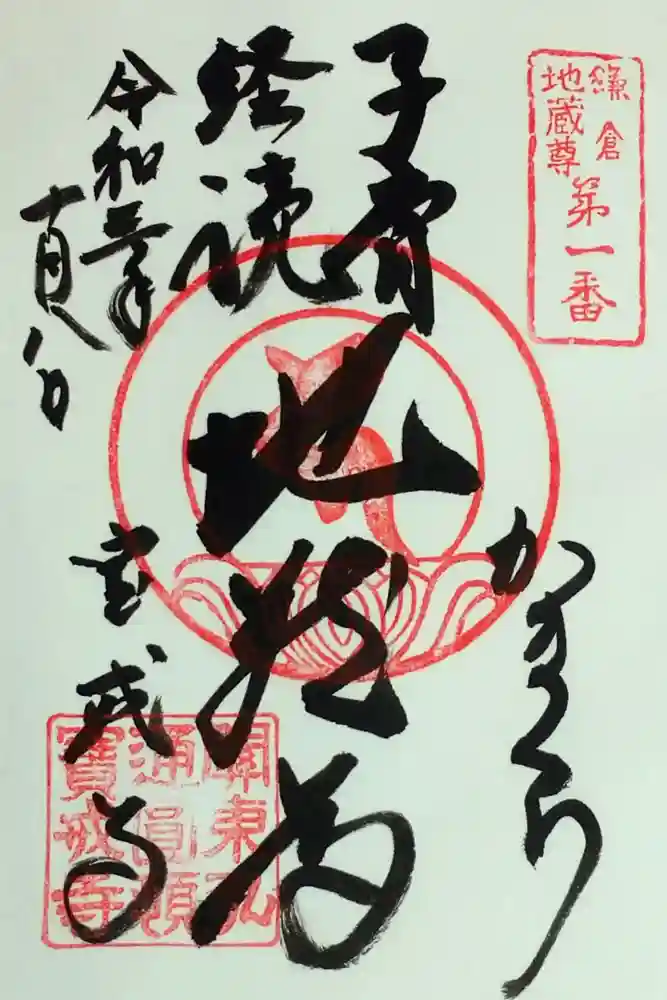 鎌倉
地蔵尊
第一番
かまくら
子育
経読
地蔵尊
令和三年
宝戒寺
關東弘
通圓頓
寶戒寺